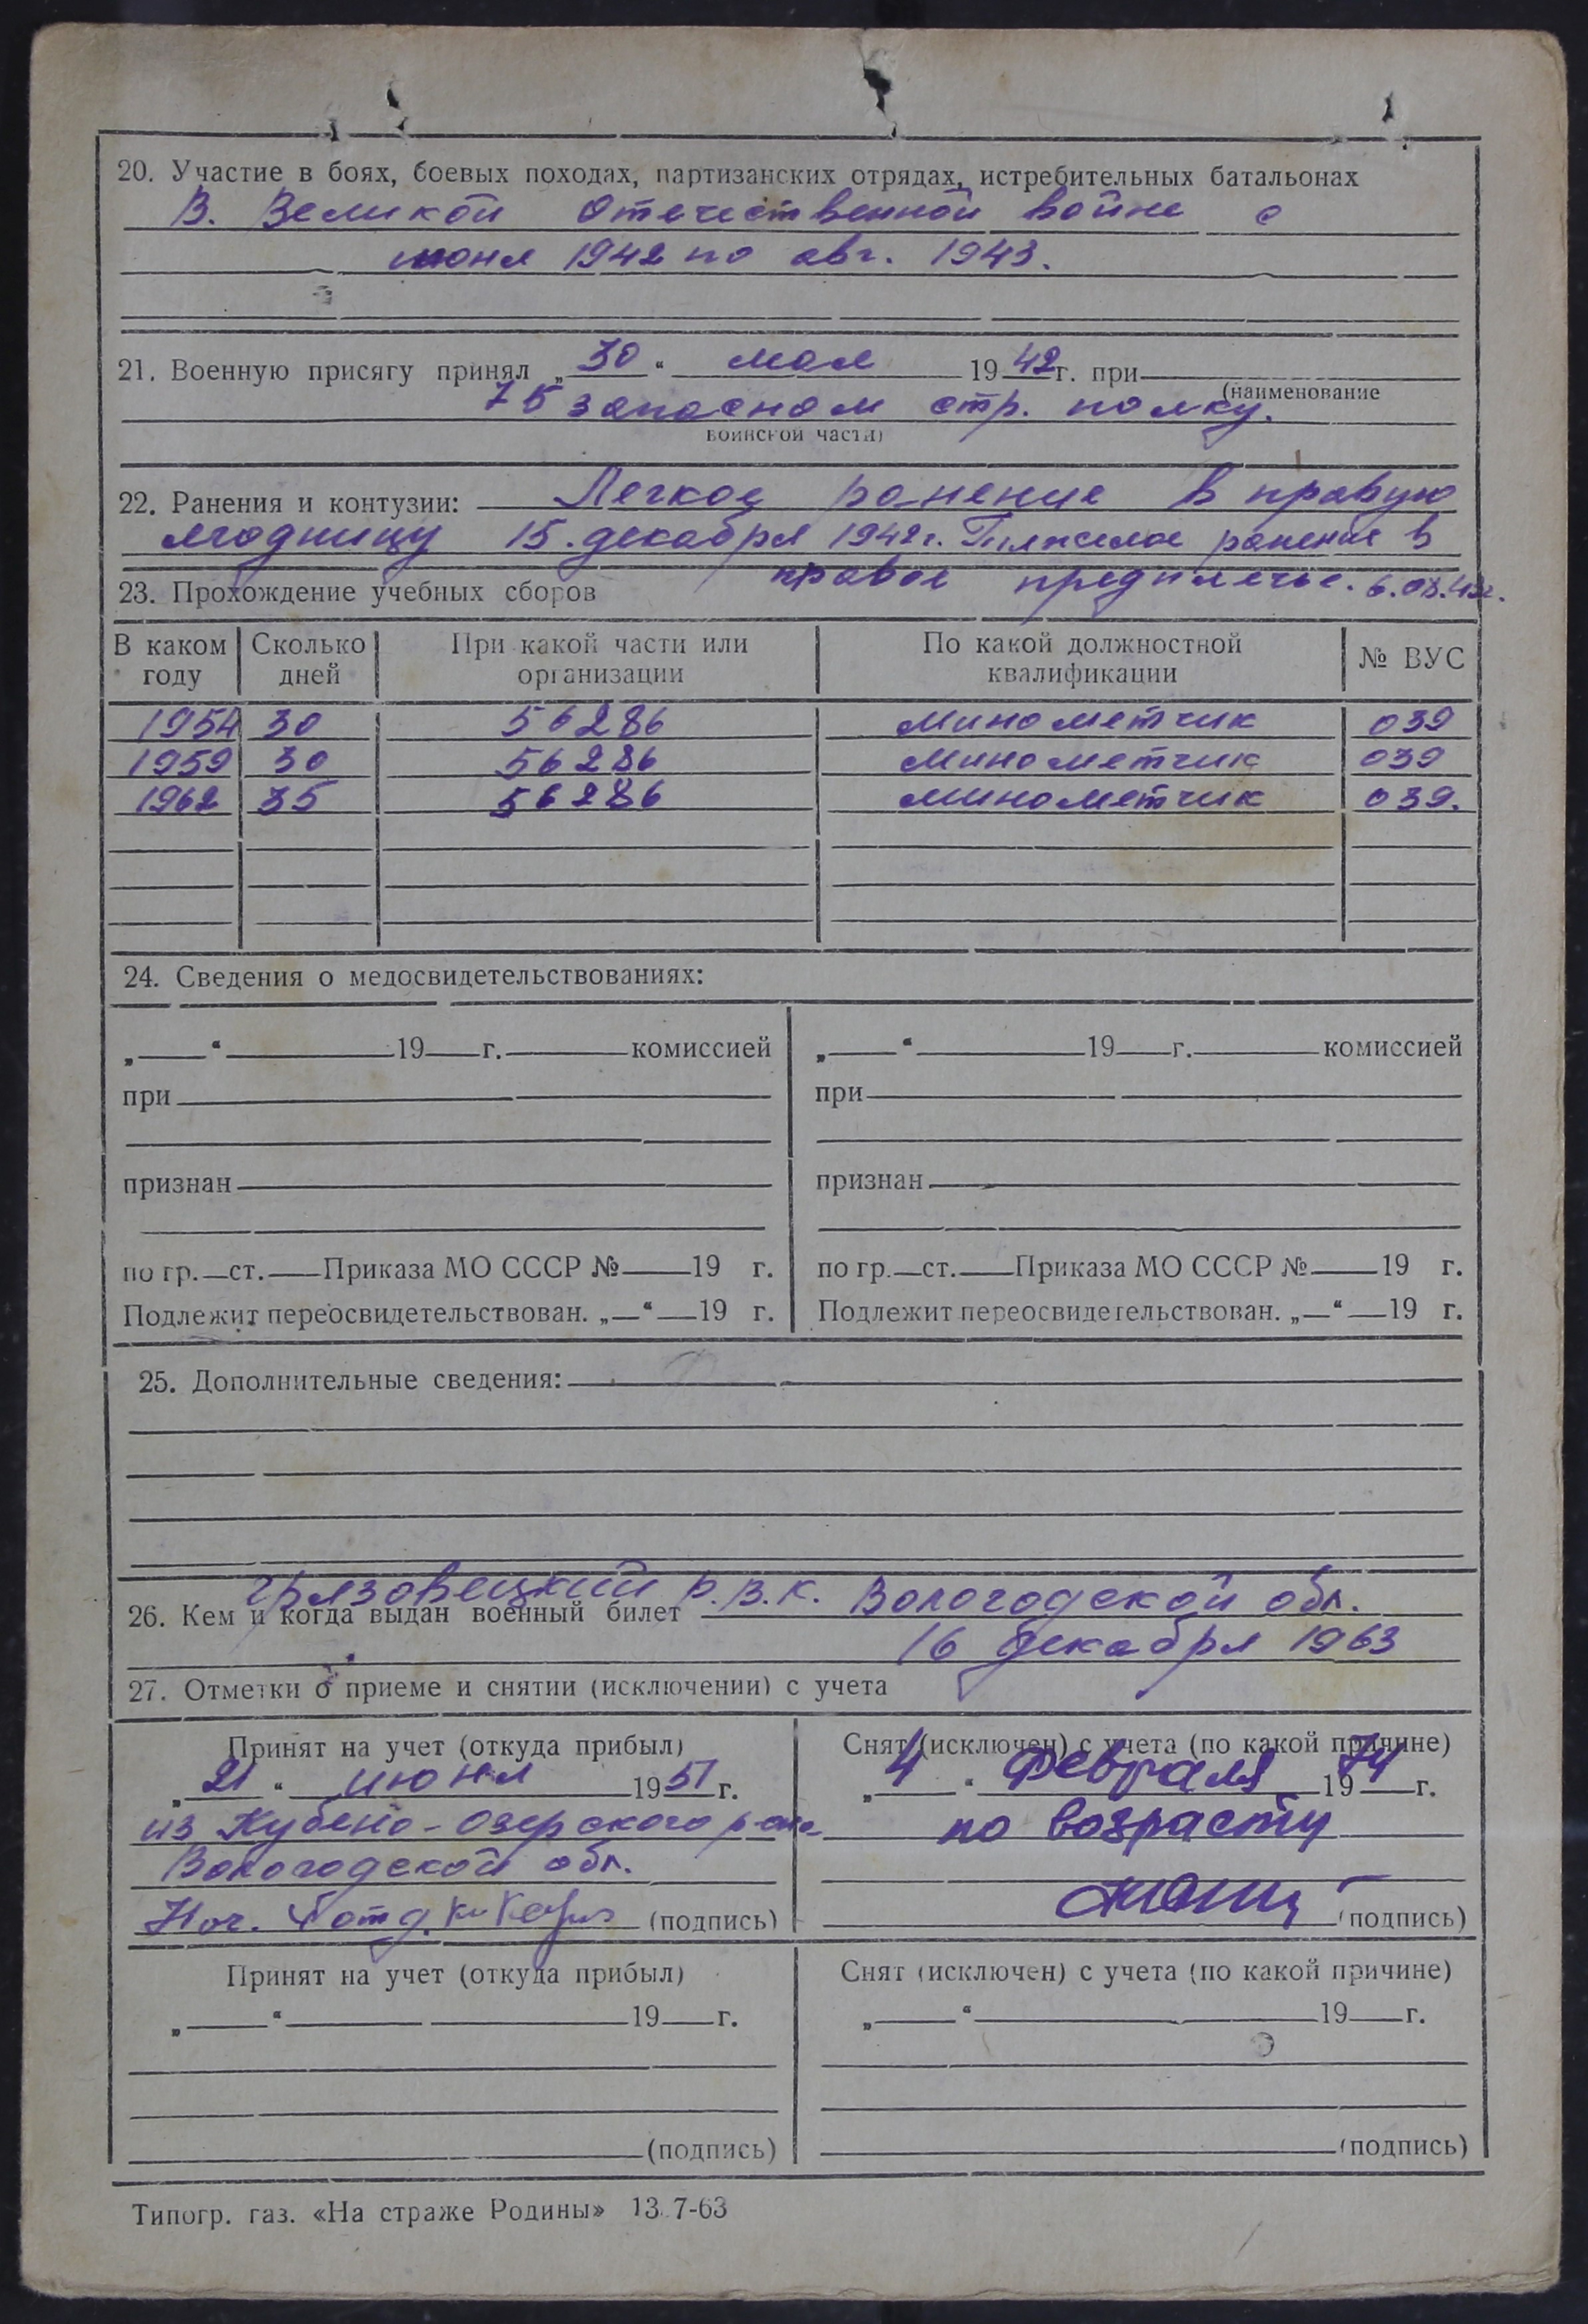 20. Участие в боях, боевых походах, партизанских отрядах, истребительных батальонах
В. Великой Отечественной войне с
июня 1942 по авг. 1943.
21. Военную присягу принял „30“ мая 1942 г. при
(наименование
75 запасном стр. полку.
воинской части)
22. Ранения и контузии: Легкое ранение в правую
ягодницу 15. декабря 1942 г. Тяжелое ранение в
правое предплечье. 6.08.43г.
23. Прохождение учебных сборов
В каком году Сколько дней При какой части или организации По какой должностной квалификации № ВУС
1954 30 56286 минометчик 039
1959 30 56286 минометчик 039
1962 35 56286 минометчик 039.
24. Сведения о медосвидетельствованиях:
„ “ 19 г. комиссией „ “ 19 г. комиссией
при при
признан признан
по гр. ст. Приказа МО СССР № 19 г. по гр. ст. Приказа МО СССР № 19 г.
Подлежит переосвидетельствован. „ “ 19 г. Подлежит переосвидетельствован. „ “ 19 г.
25. Дополнительные сведения:
26. Кем и когда выдан военный билет Грязовецкий р.в.к. Вологодской обл.
16 декабря 1963
27. Отметки о приеме и снятии (исключении) с учета
Принят на учет (откуда прибыл) Снят (исключен) с учета (по какой причине)
„21“ июня 1951 г. „4“ февраля 1974 г.
из Кубено-Озерского р-она по возрасту
Вологодской обл.
Нач. отд. (подпись) (подпись)
Принят на учет (откуда прибыл) Снят (исключен) с учета (по какой причине)
„ “ 19 г. „ “ 19 г.
(подпись) (подпись)
Типогр. газ. «На страже Родины» 13.7-63